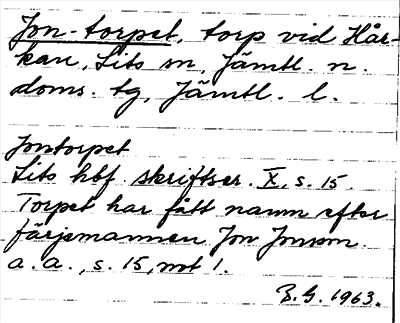 Jon-torpet, torp vid Hår-
kan, Lits sn, Jämtl. n.
doms. tg, Jämtl. l.
Jontorpet
Lits hbf. skriftser. X, s. 15.
Torpet har fått namn efter
färjemannen Jon Jonson.
a. a., s. 15, not 1.
B. G. 1963.